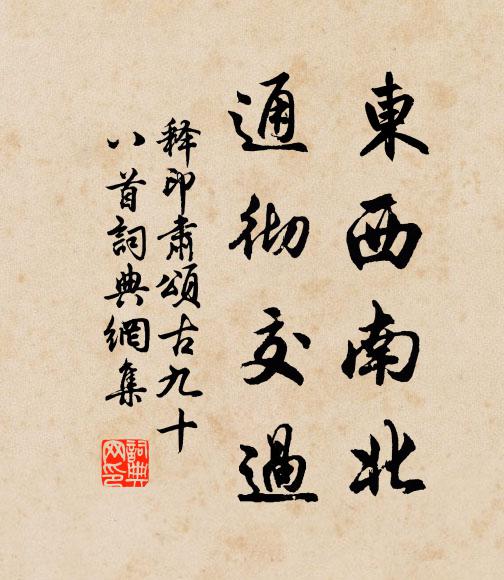 東西南北
通彻交過
释印肃頌古九十
八首詞典網集
詞典网印